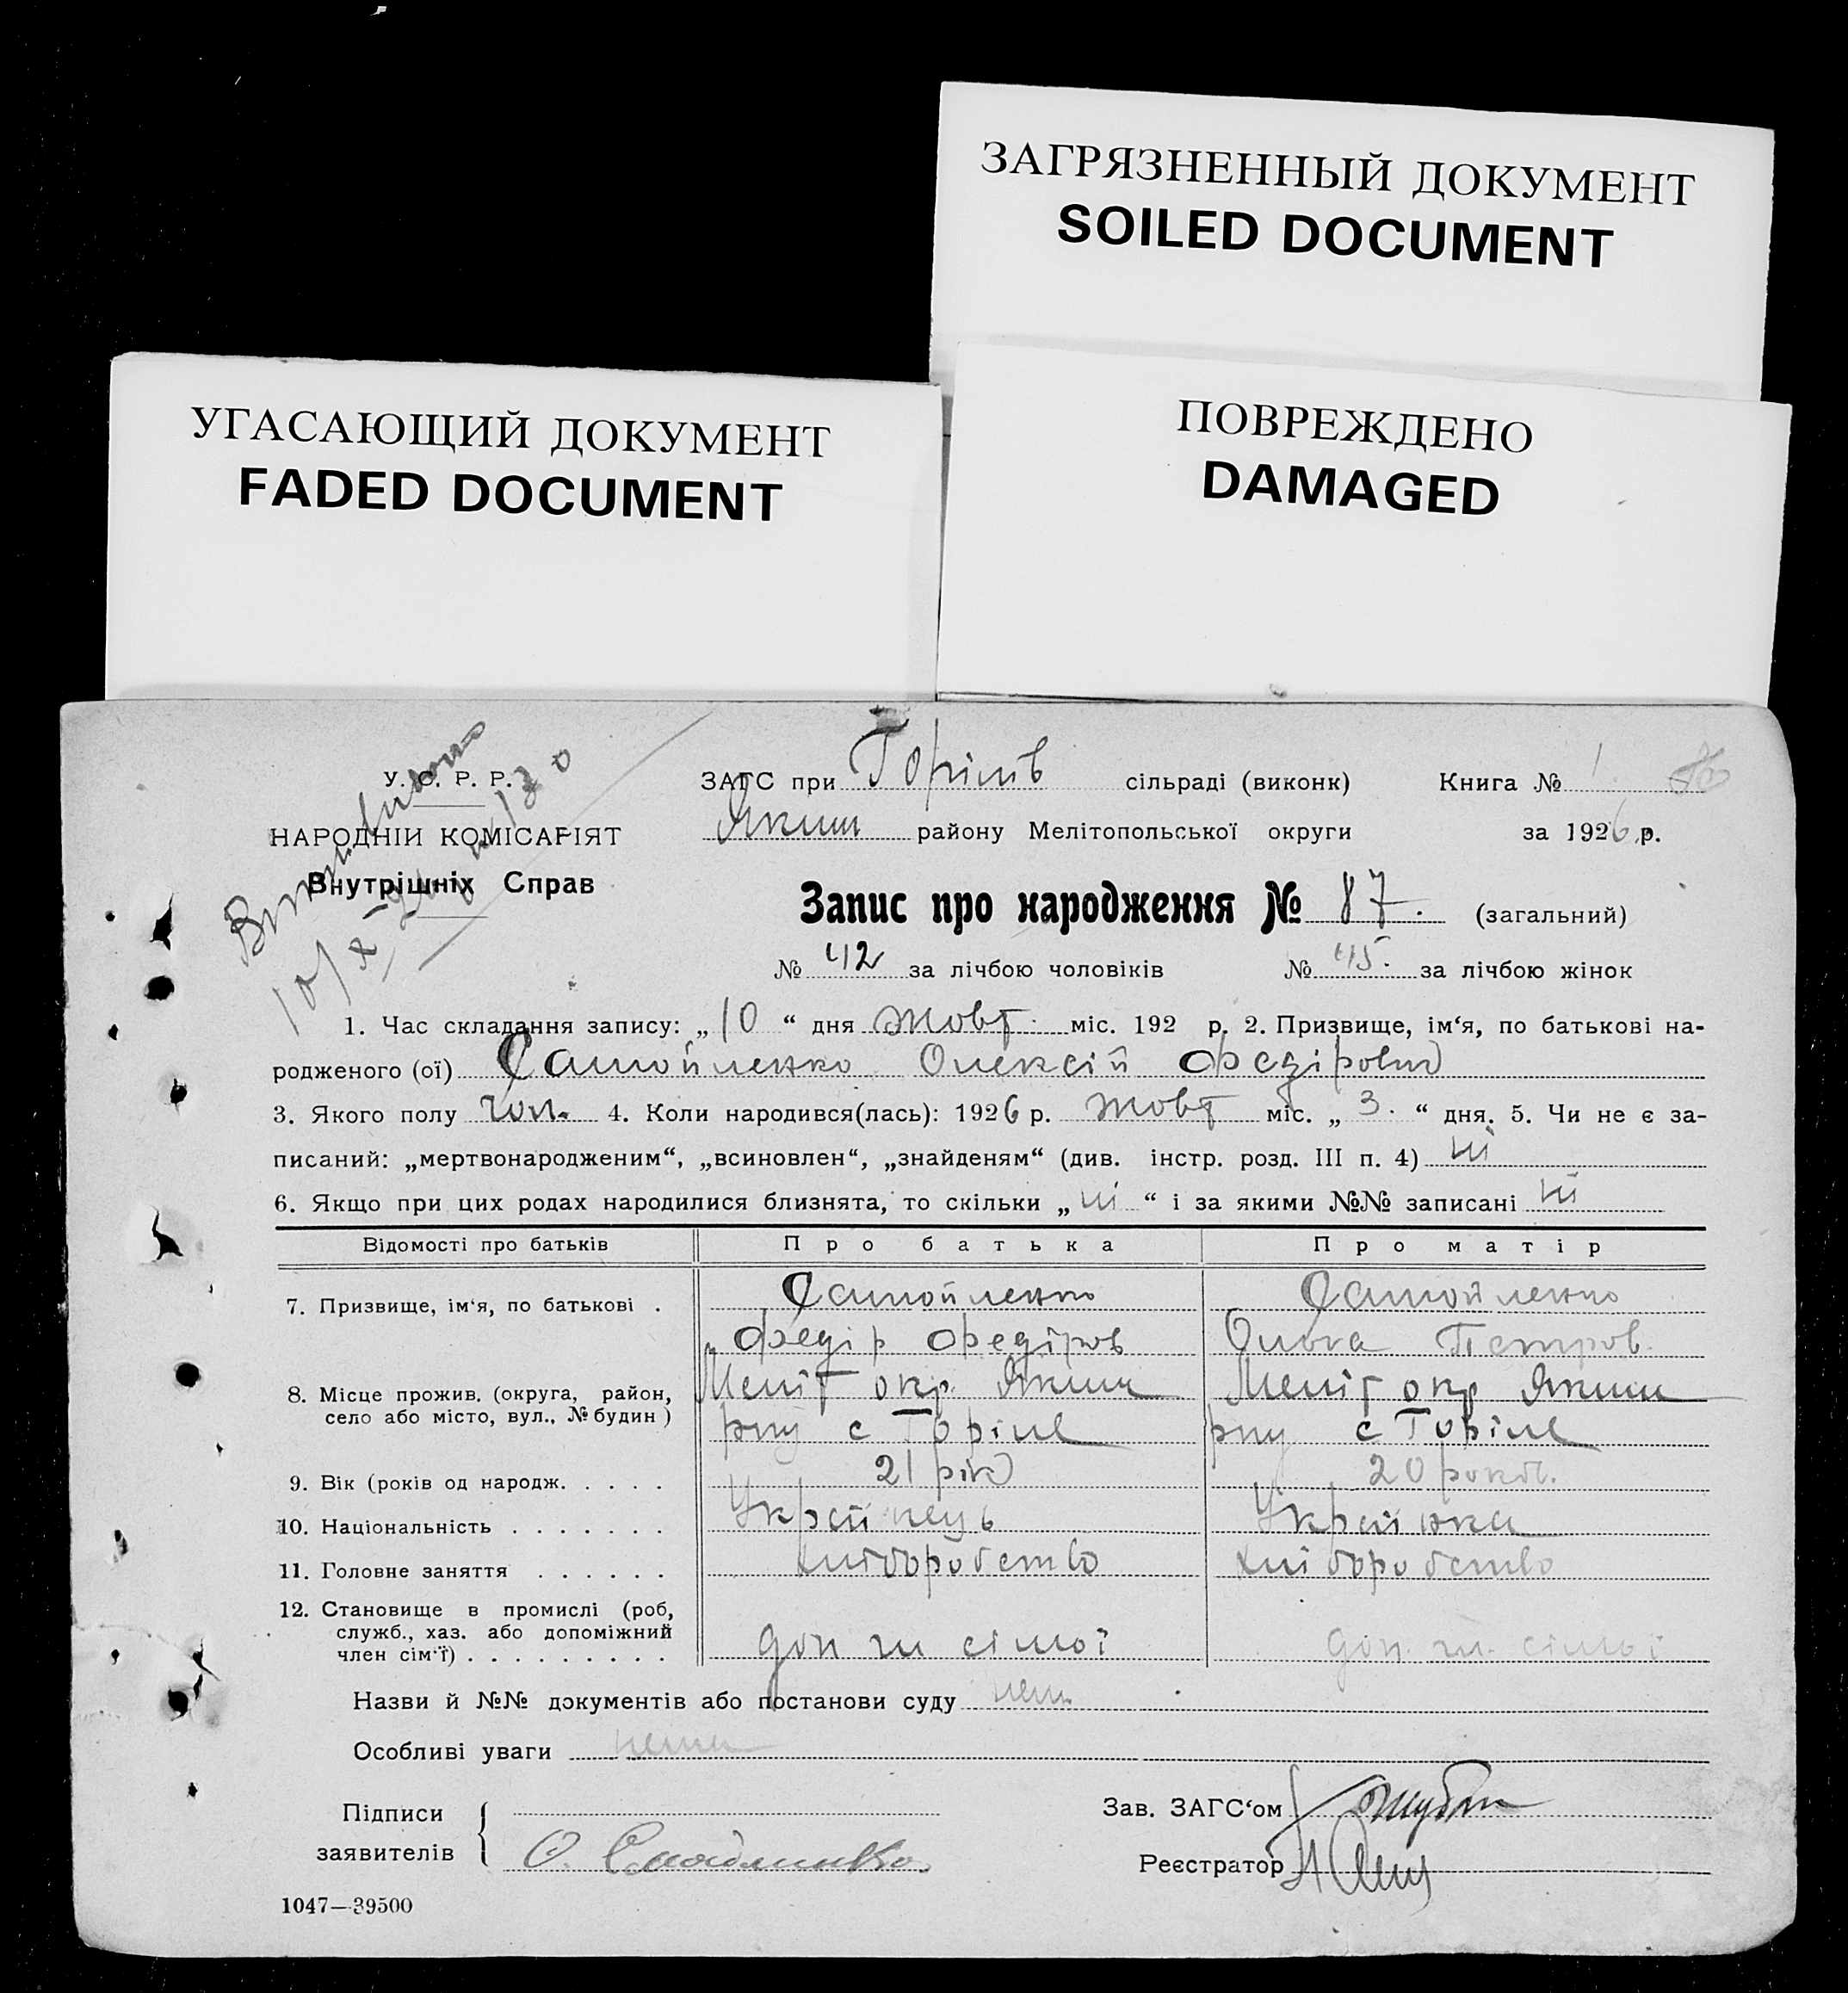 ЗАГРЯЗНЕННЫЙ ДОКУМЕНТ
SOILED DOCUMENT
УГАСАЮЩИЙ ДОКУМЕНТ
FADED DOCUMENT
ПОВРЕЖДЕНО
DAMAGED
У. С. Р. Р.
НАРОДНІЙ КОМІСАРІЯТ
Внутрішніх Справ
ЗАГС при Горілів сільраді (виконк) Книга № 1.
Яким району Мелітопольської округи за 1926 р.
Запис про народження № 87. (загальний)
№ 42 за лічбою чоловіків № 45. за лічбою жінок
1. Час складання запису: „10“ дня жовт. міс. 192 р. 2. Призвище, ім‘я, по батькові на-
родженого (ої) Самойленко Олексій Федірович
3. Якого полу чол. 4. Коли народився(лась): 1926 р. жовт міс. „3.“ дня. 5. Чи не є за-
писаний: „мертвонародженим“, „всиновлен“, „знайденям“ (див. інстр. розд. III п. 4) ні
6. Якщо при цих родах народилися близнята, то скільки „ні“ і за якими №№ записані ні
Відомості про батьків Про батька Про матір
7. Призвище, ім‘я, по батькові . Самойленко Самойленко
Федір Федіров Ольга Петров.
8. Місце прожив. (округа, район, Меліт окр. Яким Меліт окр Яким
село або місто, вул., № будин) рну с Горіле рну с Горіле
9. Вік (років од народж. . . . . 21 рік 20 років.
10. Національність . . . . . . . Українець Українка
11. Головне заняття . . . . . . хліборобство хліборобство
12. Становище в промислі (роб,
служб., хаз. або допоміжний
член сім‘ї) . . . . . . . . . доп чл сімої доп. чл. сімої
Назви й №№ документів або постанови суду нем
Особливі уваги нема
Підписи
заявителів О. Самойленко.
Зав. ЗАГС‘ом
Реєстратор
1047—39500